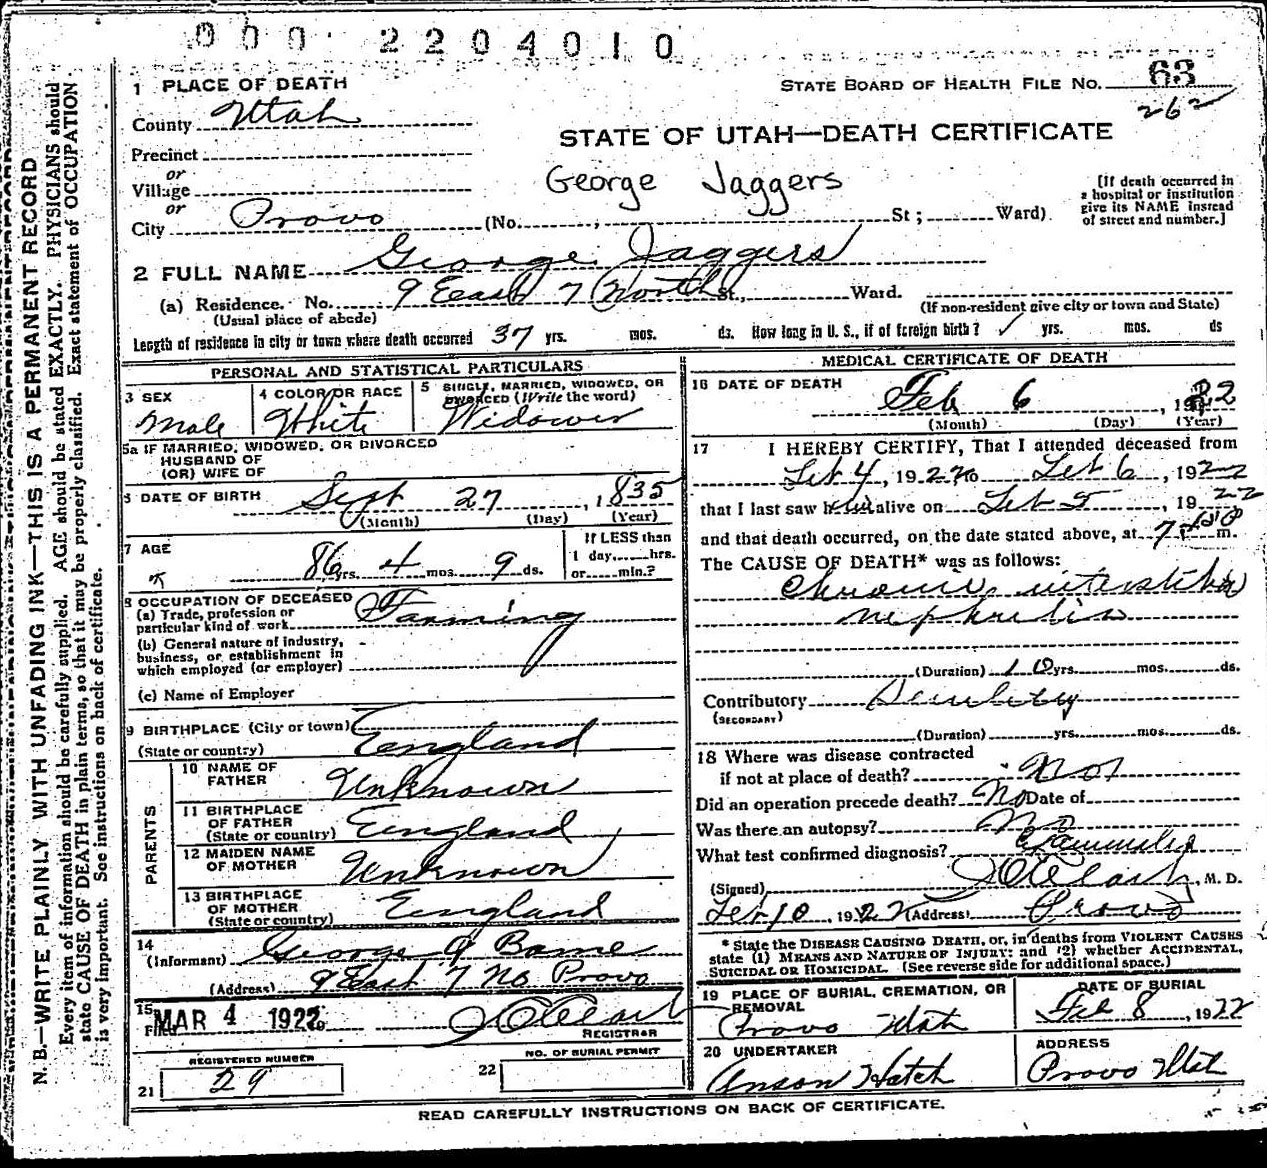 000 2204010
1 PLACE OF DEATH
STATE BOARD OF HEALTH FILE NO. 63
262
County Utah
STATE OF UTAH—DEATH CERTIFICATE
Precinct
or
Village
George Jaggers
[If death occurred in a hospital or institution give its NAME instead of street and number.]
or
City Provo (No. , St ; Ward)
2 FULL NAME George Jaggers
(a) Residence. No. 9 East 7 North St., Ward.
(Usual place of abode) (If non-resident give city or town and State)
Length of residence in city or town where death occurred 37 yrs. mos. ds. How long in U. S., if of foreign birth? ✓ yrs. mos. ds
PERSONAL AND STATISTICAL PARTICULARS
3 SEX
Male
4 COLOR OR RACE
White
5 SINGLE, MARRIED, WIDOWED, OR DIVORCED (Write the word)
Widower
5a IF MARRIED, WIDOWED, OR DIVORCED
HUSBAND OF
(OR) WIFE OF
6 DATE OF BIRTH Sept 27, 1835
(Month) (Day) (Year)
7 AGE
86 yrs. 4 mos. 9 ds.
If LESS than
1 day, hrs.
or min.?
8 OCCUPATION OF DECEASED
(a) Trade, profession or
particular kind of work Farming
(b) General nature of industry,
business, or establishment in
which employed (or employer)
(c) Name of Employer
9 BIRTHPLACE (City or town)
(State or country) England
PARENTS
10 NAME OF
FATHER Unknown
11 BIRTHPLACE
OF FATHER
(State or country) England
12 MAIDEN NAME
OF MOTHER Unknown
13 BIRTHPLACE
OF MOTHER
(State or country) England
14
(Informant) George A Bame
(Address) 9 East 7 No Provo
15
Filed MAR 4 1922
REGISTRAR
REGISTERED NUMBER
21 29
NO. OF BURIAL PERMIT
22
MEDICAL CERTIFICATE OF DEATH
16 DATE OF DEATH
Feb 6, 1922
(Month) (Day) (Year)
17 I HEREBY CERTIFY, That I attended deceased from
Feb 4, 1922 to Feb 6, 1922
that I last saw him alive on Feb 5, 1922
and that death occurred, on the date stated above, at 7 m.
The CAUSE OF DEATH* was as follows:
Chronic interstitial
nephritis
(Duration) 10 yrs. mos. ds.
Contributory Senility
(SECONDARY)
(Duration) yrs. mos. ds.
18 Where was disease contracted
if not at place of death?
Did an operation precede death? No Date of
Was there an autopsy? No
What test confirmed diagnosis?
(Signed) , M. D.
Feb 10, 1922 (Address) Provo
* State the DISEASE CAUSING DEATH, or, in deaths from VIOLENT CAUSES
state (1) MEANS AND NATURE OF INJURY; and (2) whether ACCIDENTAL,
SUICIDAL OR HOMICIDAL. (See reverse side for additional space.)
19 PLACE OF BURIAL, CREMATION, OR
REMOVAL
Provo Utah
DATE OF BURIAL
Feb 8, 1922
20 UNDERTAKER
Anson Hatch
ADDRESS
Provo Utah
READ CAREFULLY INSTRUCTIONS ON BACK OF CERTIFICATE.
N. B.—WRITE PLAINLY WITH UNFADING INK—THIS IS A PERMANENT RECORD
Every item of information should be carefully supplied. AGE should be stated EXACTLY. PHYSICIANS should
state CAUSE OF DEATH in plain terms, so that it may be properly classified. Exact statement of OCCUPATION
is very important. See instructions on back of certificate.